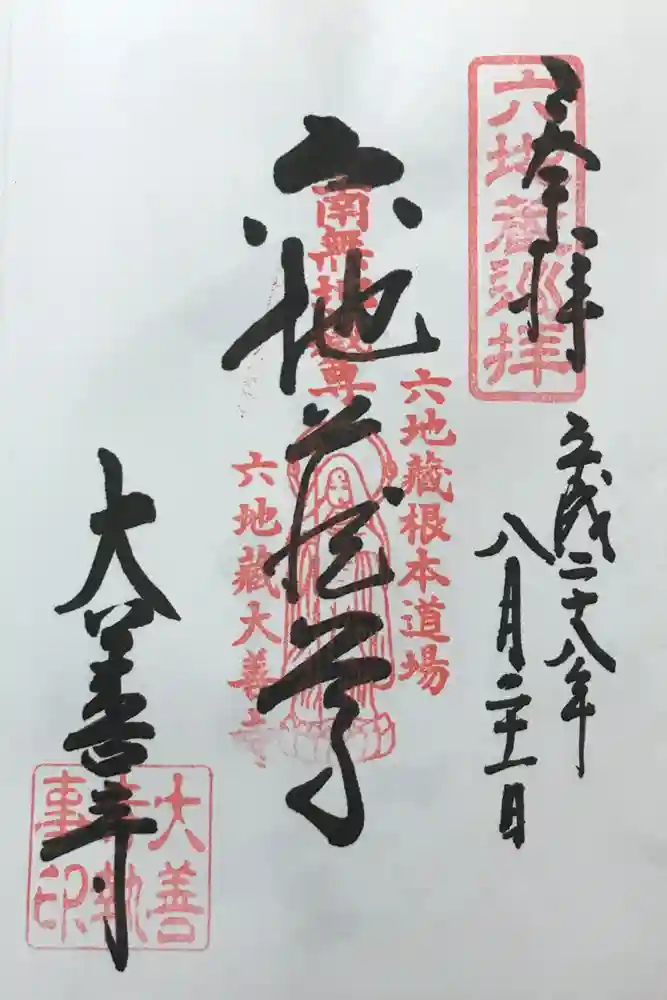 奉拝
六地蔵巡拝
平成二十八年
八月二十一日
六地蔵尊
南無地蔵尊
六地蔵根本道場
六地蔵大善寺
大善寺
大善
寺執
事印